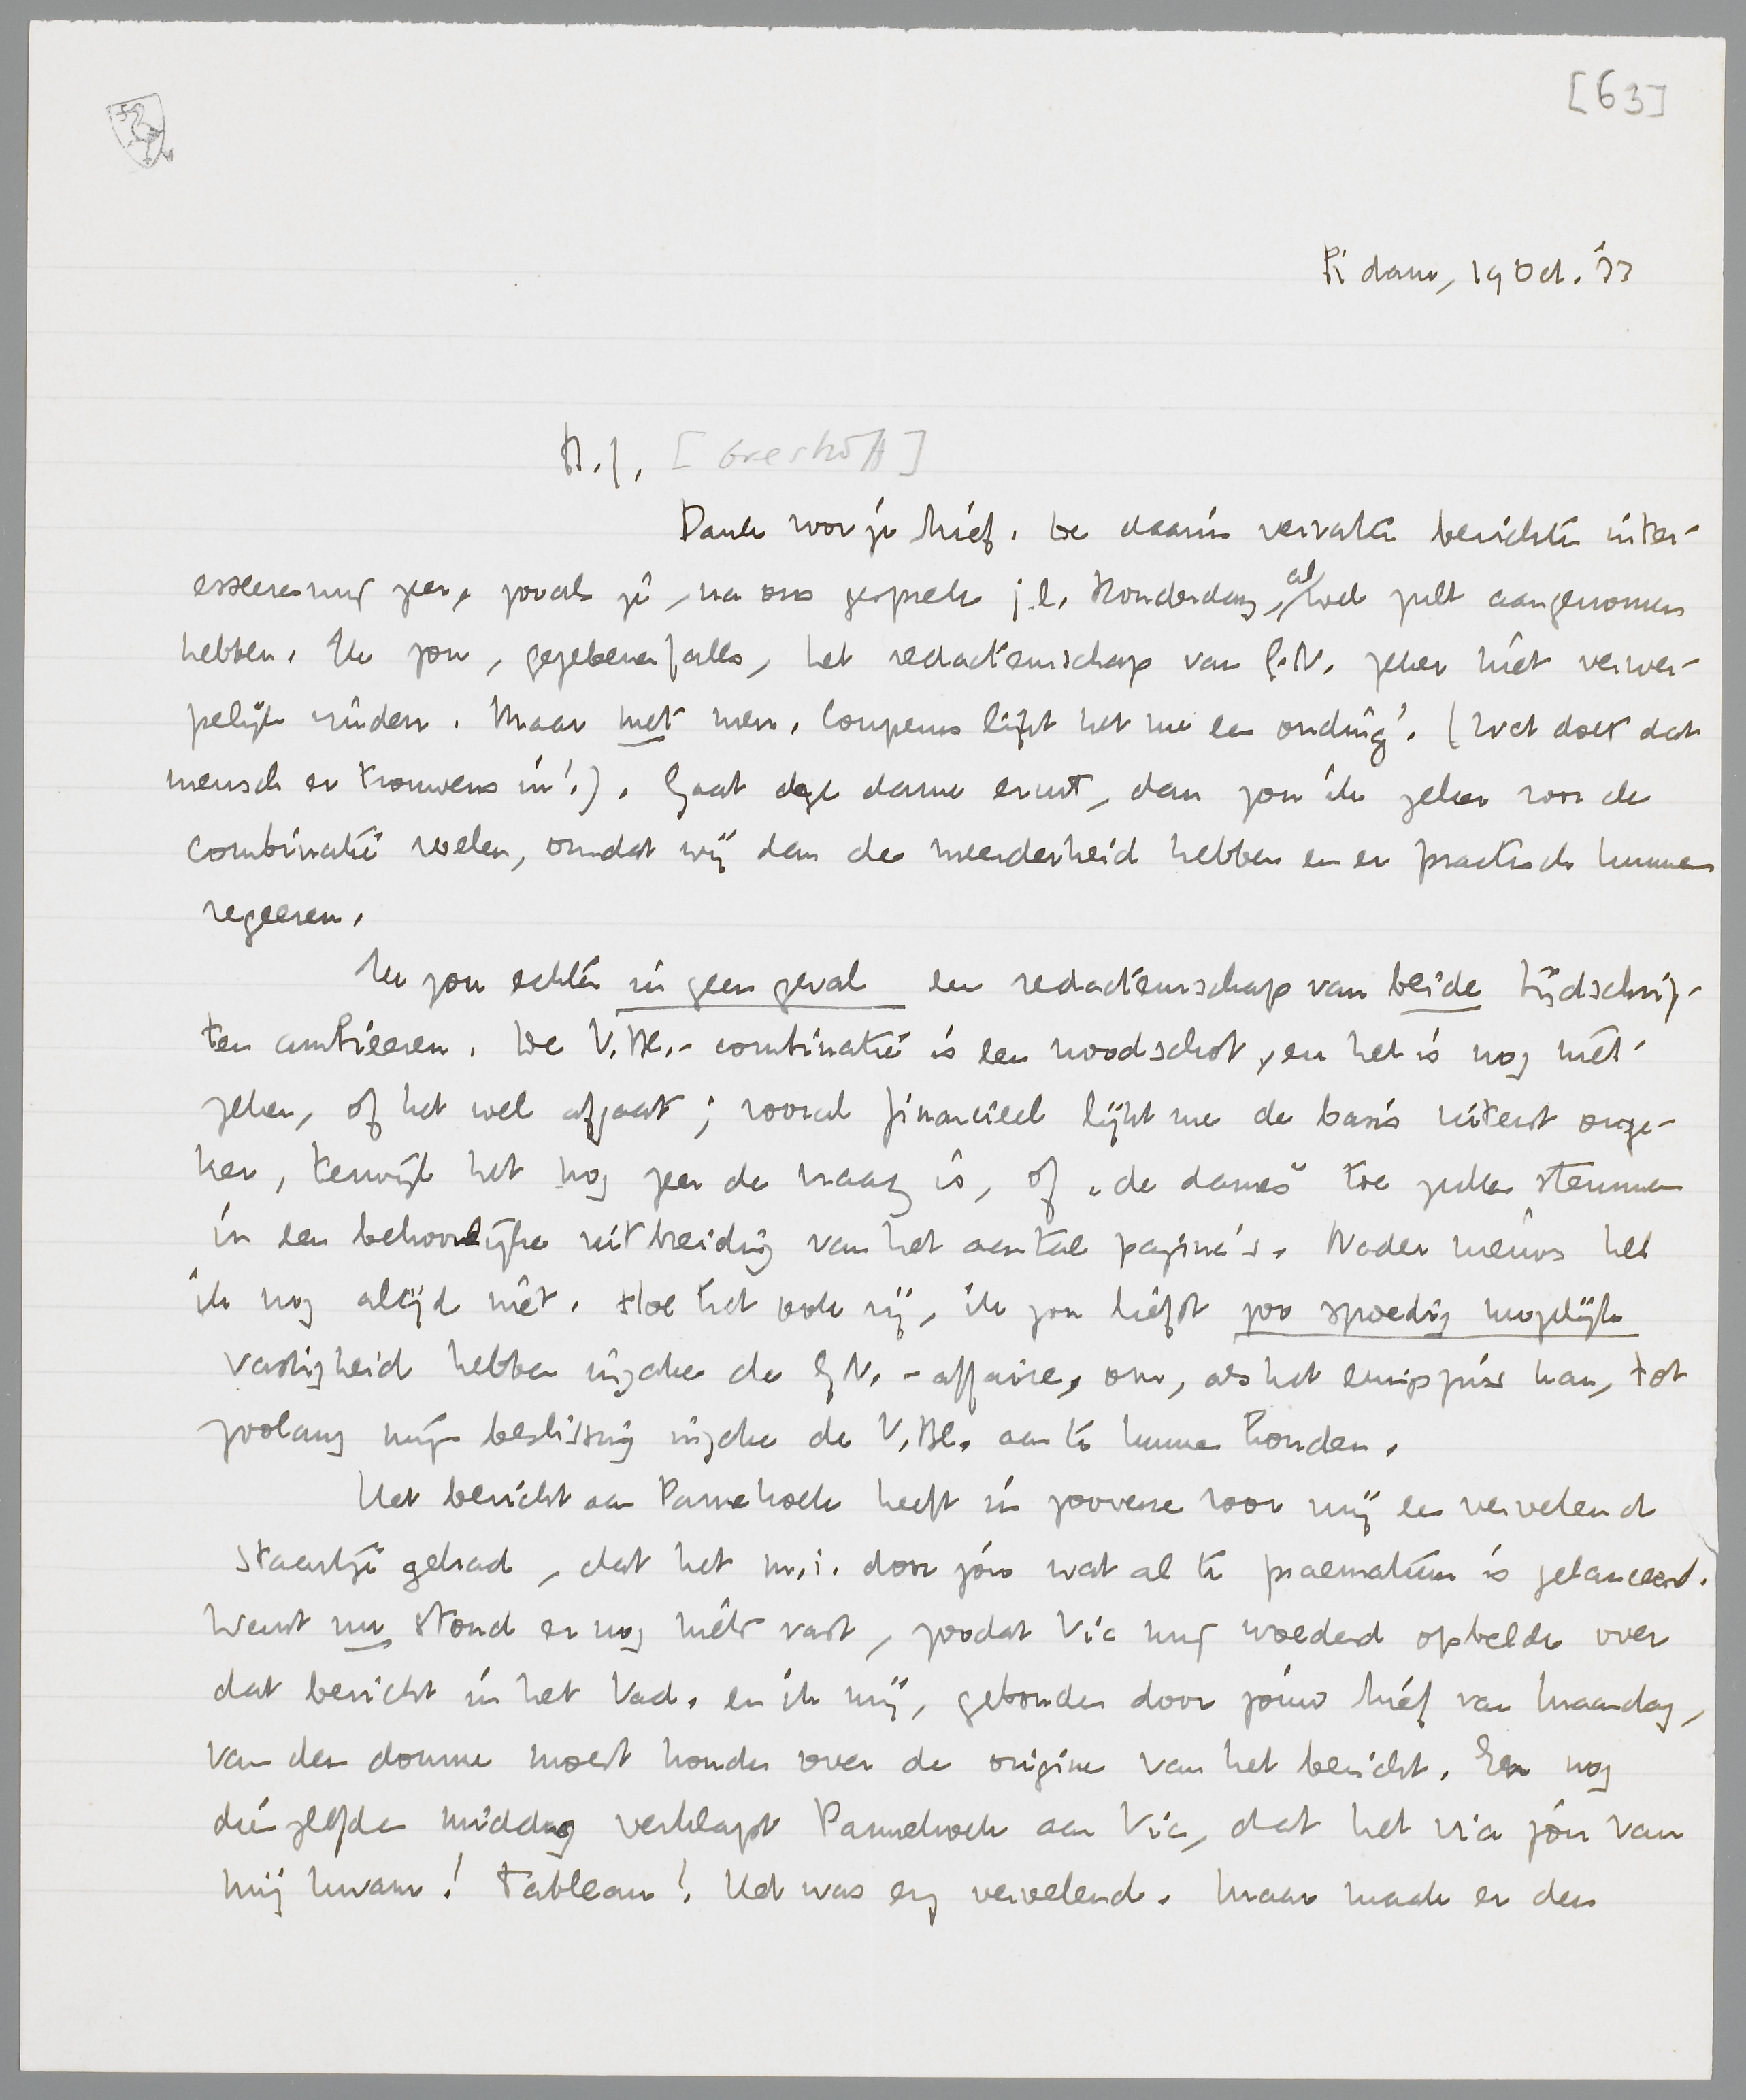 [63]
R'dam, 19 Oct. '33
B.J. [Greshoff]
Dank voor je brief. De daarin vervatte berichten inter-
esseeren mij zeer, zooals je, na ons gesprek j.l. Donderdag, al wel zult aangenomen
hebben. Ik zou, gegebenenfalls, het redacteurschap van G.N. zeker niet verwer-
pelijk vinden. Maar met mevr. Couperus lijkt het me een onding! (Wat doet dat
mensch er trouwens in!). Gaat deze dame eruit, dan zou ik zeker voor de
combinatie voelen, omdat wij dan de meerderheid hebben en er practisch kunnen
regeeren.
Ik zou echter in geen geval een redacteurschap van beide tijdschrif-
ten ambieeren. De V.Bl.-combinatie is een noodschot, en het is nog niet
zeker, of het wel afgaat; vooral financieel lijkt me de basis uiterst onze-
ker, terwijl het nog zeer de vraag is, of "de dames" toe zullen stemmen
in een behoorlijke uitbreiding van het aantal pagina's. Nader nieuws heb
ik nog altijd niet. Hoe het ook zij, ik zou liefst zoo spoedig mogelijk
vastigheid hebben inzake de G.N.-affaire, om, als het eenigszins kan, tot
zoolang mijn beslissing inzake de V.Bl. aan te kunnen houden.
Het bericht aan Pannekoek heeft in zooverre voor mij een vervelend
staartje gehad, dat het m.i. door jou wat al te praematuur is gelanceerd.
Want nu stond er nog niets vast, zoodat Vic mij woedend opbelde over
dat bericht in het Vad. en ik mij, gebonden door jouw brief van Maandag,
van den domme moest houden over de origine van het bericht. En nog
dienzelfden middag verklapt Pannekoek aan Vic, dat het via jou van
mij kwam! Tableau! Het was erg vervelend. Maar maak er den